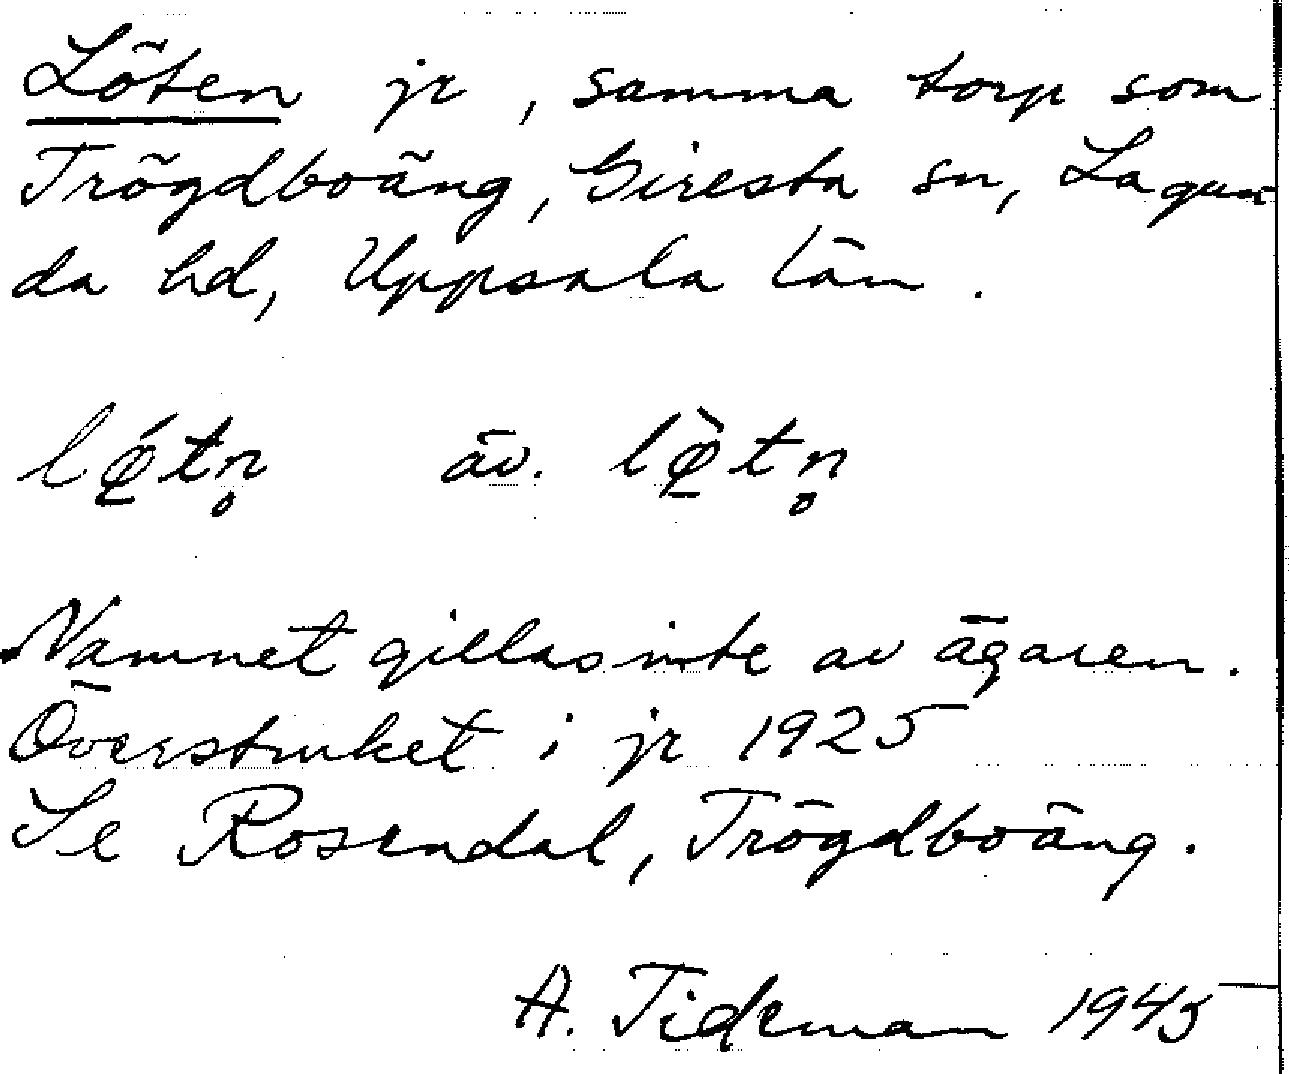 Löten jr, samma torp som
Trögdboäng, Giresta sn, Lagun-
da hd, Uppsala län.
lǿ̨tn̥ äv. lø̨̀tn̥
Namnet gillas inte av ägaren.
Överstruket i jr 1925
Se Rosendal, Trögdboäng.
A. Tideman 1945